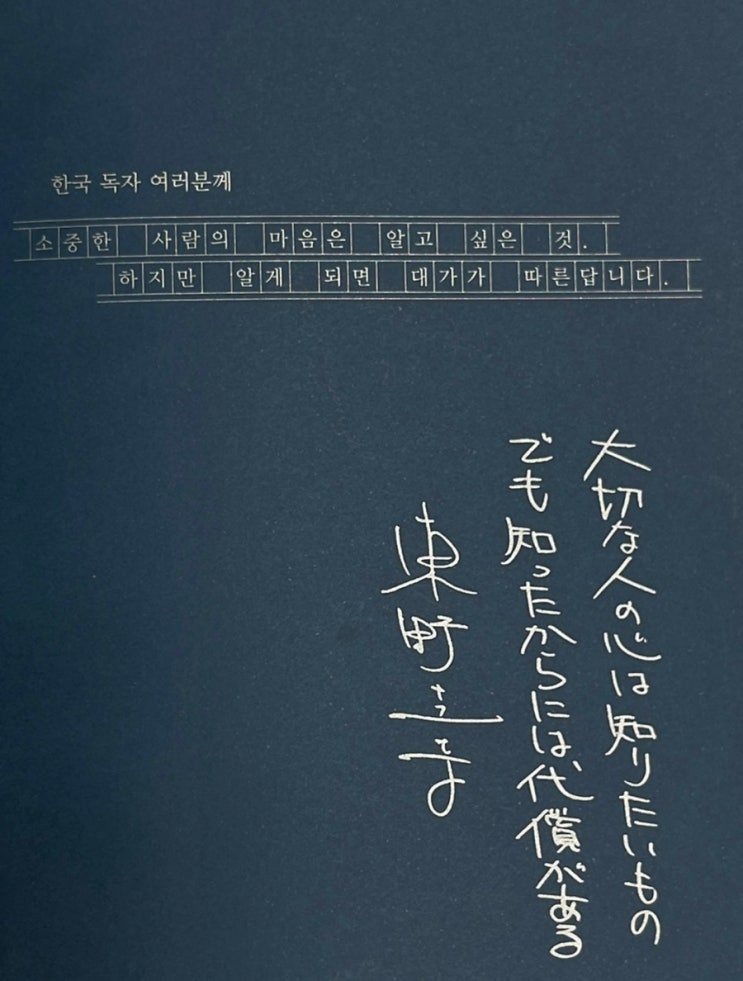 한국 독자 여러분께
소중한 사람의 마음은 알고 싶은 것.
하지만 알게 되면 대가가 따른답니다.
大切な人の心は知りたいもの
でも知ったからには、代償がある
東野圭吾